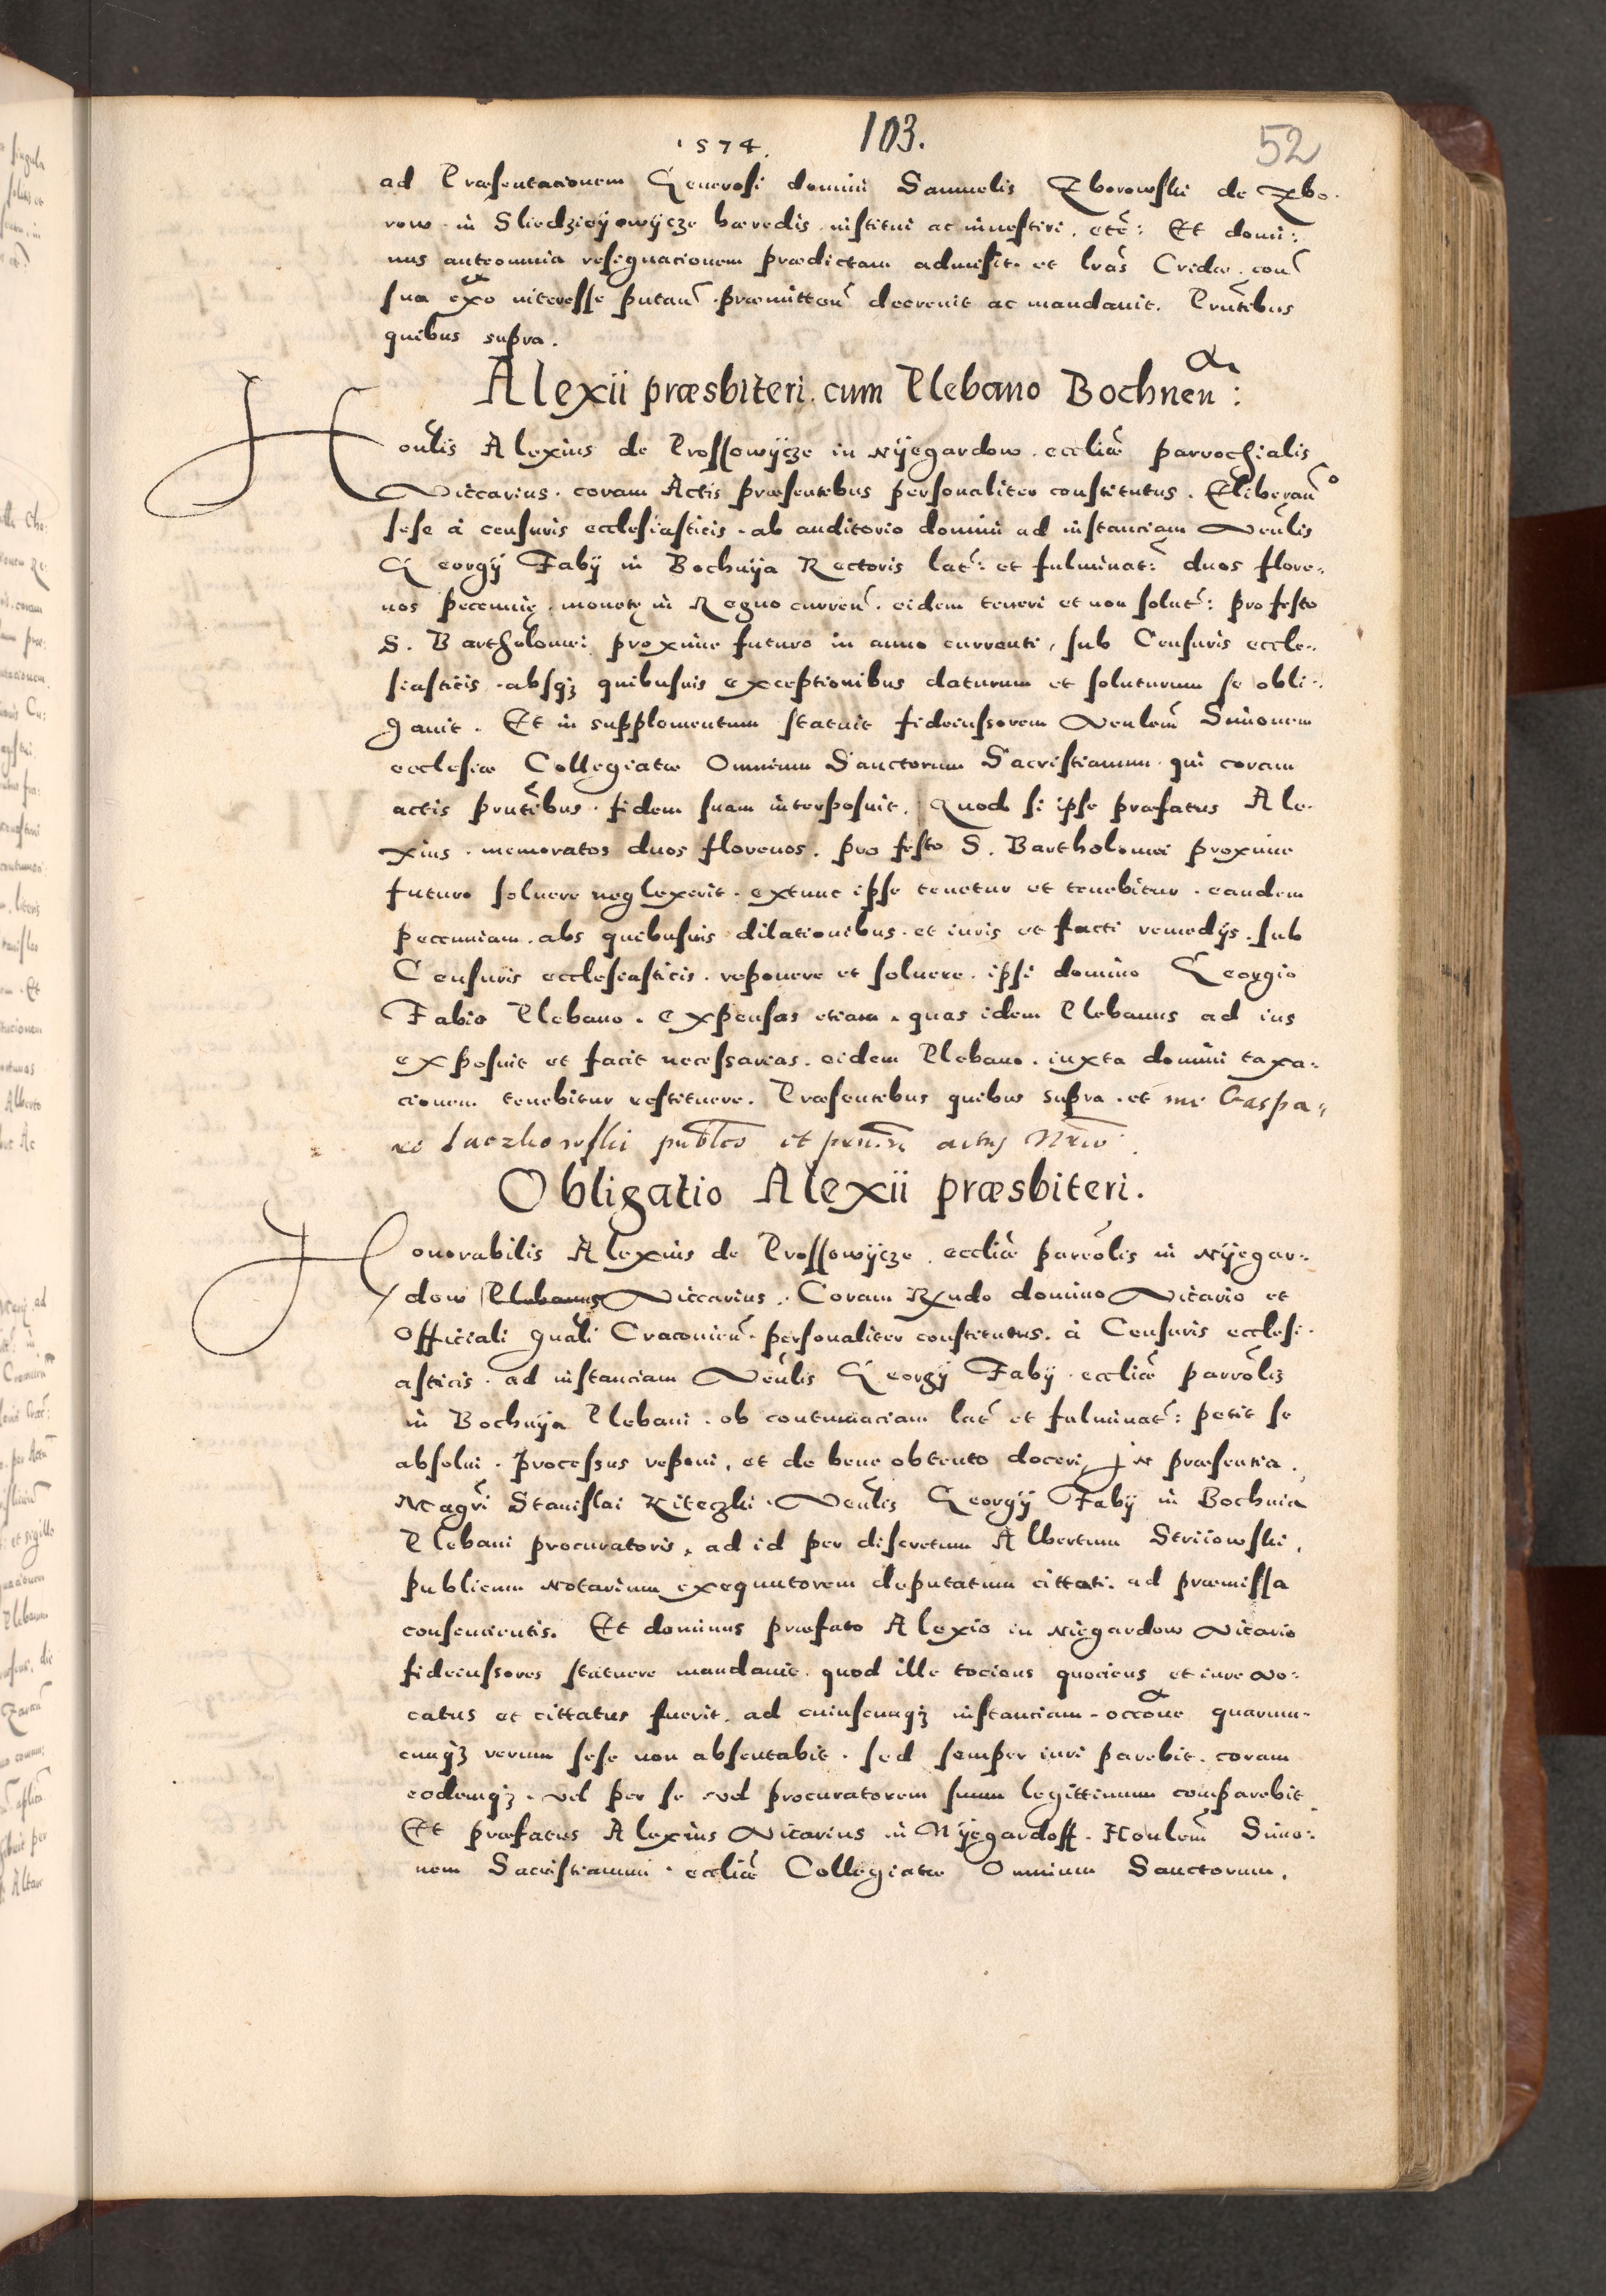 1574.
103.
52
ad Præsentacionem Generosi domini Samuelis Zborowski de Zbo-
row in Sliedzieÿowÿcze hæredis institui ac inuestiri. etc̃: Et domi:
nus anteomnia resignacionem prædictam admisit. et lrãs Cridæ. con͂
sua exõ interesse putan͂ præmitten͂ decreuit ac mandauit. Prñtibus
quibus supra.
Alexii præsbiteri cum Plebano Bochnen:
Honlis Alexius de Prossowÿcze in Nÿegardow. eccliæ parrochialis
Viccarius. coram Actis præsentibus personaliter constitutus. Eliberan͂o
sese à censuris ecclesiasticis. ab auditorio domini ad instanciam Venlis
Georgÿ Fabÿ in Bochnÿa Rectoris lat: et fulminat: duos flore-
nos pecunię. monetę in Regno curren͂. eidem teneri et non solut: pro festo
S. Bartholomei proxime futuro in anno currenti, sub Censuris eccle-
siasticis. absqʒ quibusuis exceptionibus daturum et soluturum se obli-
gauit. Et in supplementum statuit fideiussorem Venlem Simonem
ecclesiæ Collegiatæ Omnium Sanctorum Sacristianum. qui coram
actis prñtibus. fidem suam interposuit. Quod si ipse præfatus Ale-
xius. memoratos duos florenos. pro festo S. Bartholomei proxime
futuro soluere neglexerit. extunc ipse tenetur et tenebitur. eandem
pecuniam. abs quibusuis dilationibus. et iuris et facti remedÿs. sub
Censuris ecclesiasticis. reponere et soluere. ipsi domino Georgio
Fabio Plebano. expensas etiam. quas idem Plebanus ad ius
exposuit et facit necessarias. eidem Plebano. iuxta domini taxa-
cionem tenebitur restituere. Præsentibus quibus supra. et me Caspa-
re Luczkowski publco et actus Nrio.
Obligatio Alexii præsbiteri.
Honorabilis Alexius de Prossowÿcze. eccliæ parrolis in Nÿegar-
dow Plebanus Viccarius. Coram Rndo domino Vicario et
Officiali gnali Cracouien͂. personaliter constitutus. à Censuris ecclesi-
asticis. ad instanciam Venlis Georgÿ Fabÿ. eccliæ parrolis
in Bochnÿa Plebani. ob contumaciam lat et fulminat: petit se
absolui. processus reponi, et de bene obtento doceri, in præsentia.
Magri Stanislai Kiteczki. Venlis Georgÿ Fabÿ in Bochnia
Plebani procuratoris, ad id per discretum Albertum Striiowski,
publicum Notarium exequutorem deputatum cittati. ad præmissa
consencientis. Et dominus præfato Alexio in Niegardow Vicario
fideiussores statuere mandauit. quod ille tociens quociens et iure vo-
catus et cittatus fuerit. ad cuiuscunqʒ instanciam. occõne quarum-
cunqʒ rerum sese non absentabit. sed semper iuri parebit. coram
eodemqʒ. vel per se vel procuratorem suum legittimum comparebit
Et præfatus Alexius Vicarius in Nÿegardoff. Honlem Simo-
nem Sacristianum. eccliæ Collegiatæ Omnium Sanctorum,